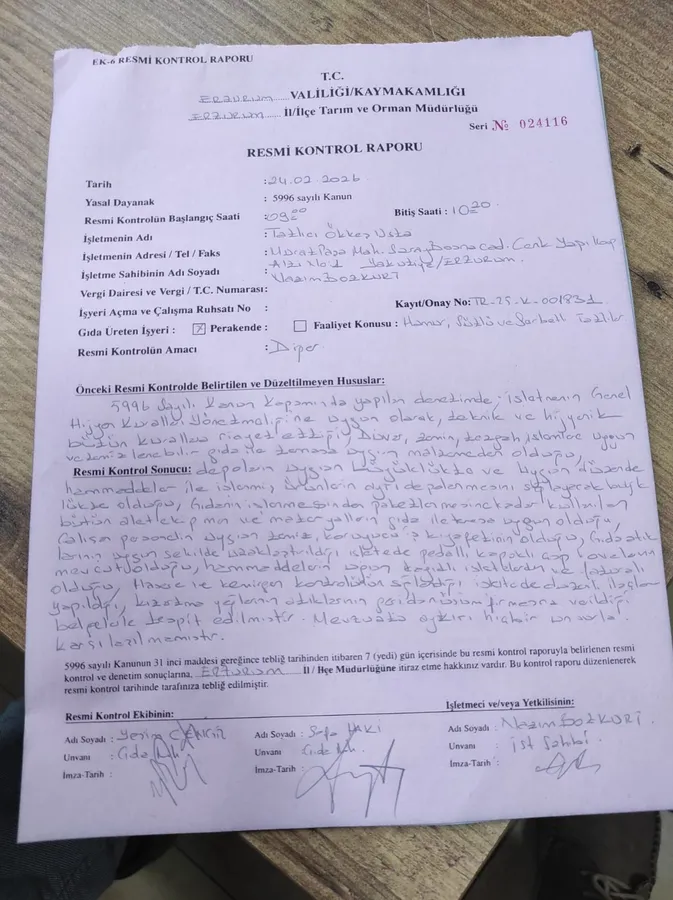 EK-6 RESMİ KONTROL RAPORU
T.C.
ERZURUM......VALİLİĞİ/KAYMAKAMLIĞI
ERZURUM...... İl/İlçe Tarım ve Orman Müdürlüğü
Seri № 024116
RESMİ KONTROL RAPORU
Tarih : 24.02.2026
Yasal Dayanak : 5996 sayılı Kanun
Resmi Kontrolün Başlangıç Saati : 09:00 Bitiş Saati : 10:20
İşletmenin Adı : Tatlıcı Ökkeş Usta
İşletmenin Adresi / Tel / Faks : Muratpaşa Mah. Saray Bosna cad. Cenk Yapı Koop
Altı No:1 Yakutiye/ERZURUM.
İşletme Sahibinin Adı Soyadı : Nazım BOZKURT
Vergi Dairesi ve Vergi / T.C. Numarası:
İşyeri Açma ve Çalışma Ruhsatı No : Kayıt/Onay No: TR-25-K-001831
Gıda Üreten İşyeri : X Perakende : Faaliyet Konusu : Hamur, Sütlü ve Şerbetli Tatlılar
Resmi Kontrolün Amacı : Diğer
Önceki Resmi Kontrolde Belirtilen ve Düzeltilmeyen Hususlar:
5996 Sayılı Kanun Kapsamında yapılan denetimde; işletmenin Genel
Hijyen Kuralları Yönetmeliğine uygun olarak, teknik ve hijyenik
bütün kurallara riayet ettiği, Duvar, zemin, tezgah işlemlere uygun
ve temizlenebilir gıda ile temasa uygun malzemeden olduğu,
Resmi Kontrol Sonucu: depoların uygun büyüklükte ve uygun düzende
hammaddeler ile işlenmiş ürünlerin ayrı depolanmasını sağlayacak büyük
lükte olduğu, Gıdanın işlenmesinden paketlenmesine kadar kullanılan
bütün alet ekipman ve materyallerin gıda ile temasa uygun olduğu,
Çalışan personelin uygun temiz, koruyucu iş kıyafetinin olduğu, Gıda atık
larının uygun şekilde uzaklaştırıldığı işletmede pedallı kapaklı çöp kovalarının
mevcut olduğu, hammaddelerin uygun kayıtlı işletmelerden ve faturalı
olduğu, Haşere ile kemirgen kontrolünün sağladığı işletmede düzenli ilaçlama
yapıldığı, kızartma yağlarının atıklarının geri dönüşüm firmasına verildiği
belgelerle tespit edilmiştir. Mevzuata aykırı hiçbir unsurla
karşılaşılmamıştır.
5996 sayılı Kanunun 31 inci maddesi gereğince tebliğ tarihinden itibaren 7 (yedi) gün içerisinde bu resmi kontrol raporuyla belirlenen resmi
kontrol ve denetim sonuçlarına, ERZURUM İl / İlçe Müdürlüğüne itiraz etme hakkınız vardır. Bu kontrol raporu düzenlenerek
resmi kontrol tarihinde tarafınıza tebliğ edilmiştir.
Resmi Kontrol Ekibinin: İşletmeci ve/veya Yetkilisinin:
Adı Soyadı : CENGİZ Adı Soyadı : Adı Soyadı : Nazım BOZKURT
Unvanı : Gıda Müh. Unvanı : Gıda Müh. Unvanı : işt Sahibi
İmza-Tarih : İmza-Tarih : İmza-Tarih :